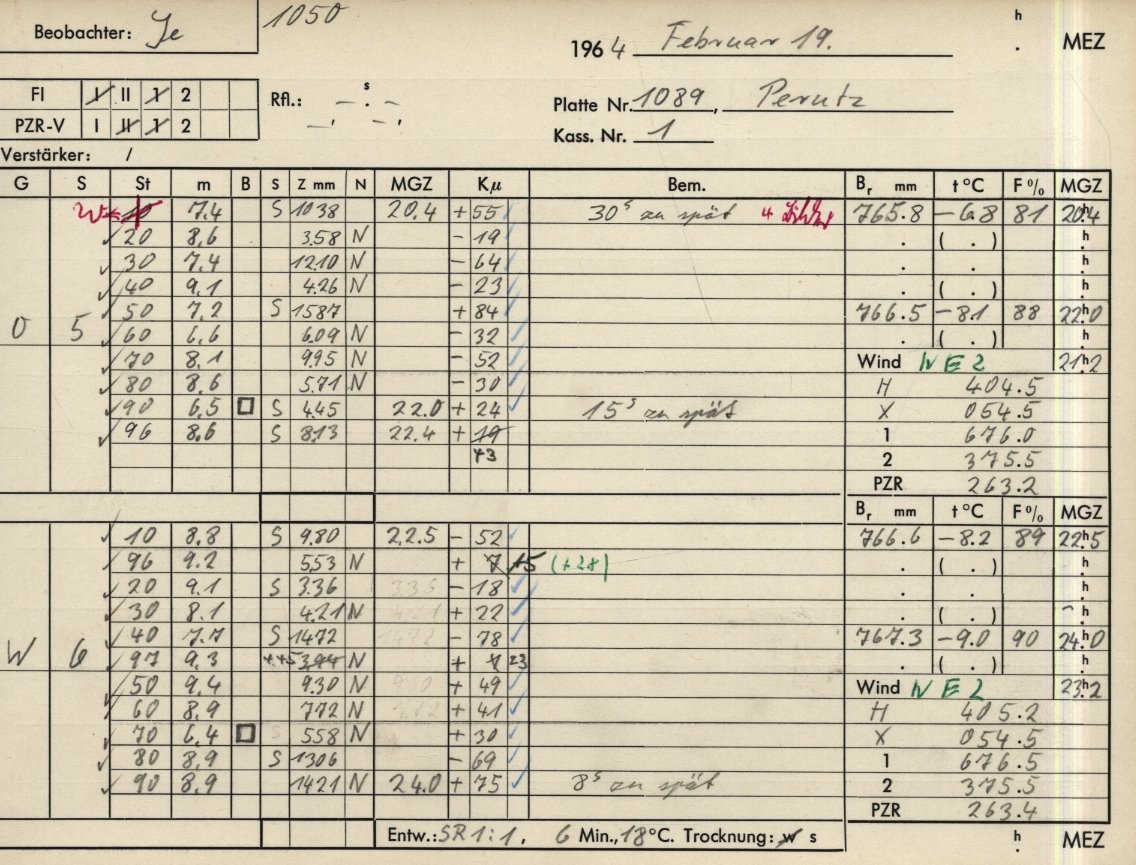 1050
Beobachter: Je
h
1964 Februar 19. . MEZ
FI I II 1 2 Rfl.: – s. –
Platte Nr. 1089, Perutz
PZR-V I II 1 2 –, –,
Kass. Nr. 1
Verstärker: /
G S St m B S Z mm N MGZ Kµ Bem. Br mm t °C F % MGZ
10 7.4 S 1038 20.4 + 55 30s zu spät 765.8 -6.8 81 20h4
20 8.6 3.58 N - 19 . ( . ) h
30 7.4 12.10 N - 64 . . h
40 9.1 4.26 N - 23 . ( . ) h
50 7.2 S 1587 + 84 766.5 -8.1 88 22h0
0 5 60 6.6 6.09 N - 32 . ( . ) h
70 8.1 9.95 N - 52 Wind NE 2 21h2
80 8.6 5.71 N - 30 H 404.5
90 6.5 □ S 4.45 22.0 + 24 15s zu spät X 054.5
96 8.6 S 8.13 22.4 + 19 1 676.0
43 2 375.5
PZR 263.2
Br mm t °C F % MGZ
10 8.8 S 9.80 22.5 - 52 766.6 -8.2 89 22h5
96 9.2 5.53 N + 7 15 (+28) . ( . ) h
20 9.1 S 3.36 - 18 . . h
30 8.1 4.21 N + 22 . ( . ) h
40 7.7 S 1472 - 78 767.3 -9.0 90 24h0
W 6 97 9.3 3.94 N + 23 . ( . ) h
50 9.4 9.30 N + 49 Wind NE 2 23h2
60 8.9 7.72 N + 41 H 405.2
70 6.4 □ 5.58 N + 30 X 054.5
80 8.9 S 1306 - 69 1 676.5
90 8.9 1421 N 24.0 + 75 8s zu spät 2 375.5
PZR 263.4
Entw.: SR 1:1, 6 Min., 18 °C. Trocknung: w s h . MEZ